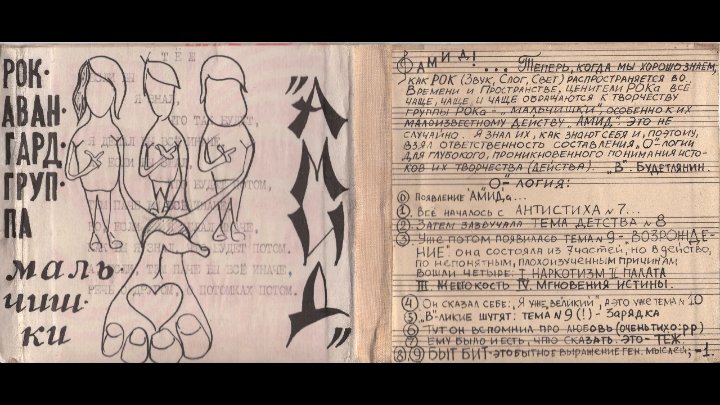 РОК-
АВАН-
ГАРД-
ГРУП-
ПА
маль
чиш-
ки
"АМИД"
ТЁШ
Я ЗНАЛ,
И ЗНАЛ, БУДЕТ ПОТОМ.
ВСЁ ИНАЧЕ,
РЕЧЬ О ДРУГОМ, О ПОТОМКАХ ПОТОМ.
АМИД!
... ТЕПЕРЬ, КОГДА МЫ ХОРОШО ЗНАЕМ,
КАК РОК (ЗВУК, СЛОГ, СВЕТ) РАСПРОСТРАНЯЕТСЯ ВО
ВРЕМЕНИ И ПРОСТРАНСТВЕ, ЦЕНИТЕЛИ РОКа ВСЁ
ЧАЩЕ, ЧАЩЕ И ЧАЩЕ ОБРАЧАЮТСЯ К ТВОРЧЕСТВУ
ГРУППЫ РОКа - МАЛЬЧИШКИ", ОСОБЕННО К ИХ
МАЛОИЗВЕСТНОМУ ДЕЙСТВУ, "АМИД". ЭТО НЕ
СЛУЧАЙНО. Я ЗНАЛ ИХ, КАК ЗНАЮТ СЕБЯ И, ПОЭТОМУ,
ВЗЯЛ ОТВЕТСТВЕННОСТЬ СОСТАВЛЕНИЯ „О"-ЛОГИИ
ДЛЯ ГЛУБОКОГО, ПРОНИКНОВЕННОГО ПОНИМАНИЯ ИСТО-
КОВ ИХ ТВОРЧЕСТВА (ДЕЙСТВА). "В". БУДЕТЛЯНИН.
"О"-ЛОГИЯ:
0 ПОЯВЛЕНИЕ "АМИД„а...
1 ВСЁ НАЧАЛОСЬ С АНТИСТИХА №7...
2 ЗАТЕМ ЗАЗВУЧАЛА ТЕМА ДЕТСТВА №8
3 УЖЕ ПОТОМ ПОЯВИЛАСЬ ТЕМА №9-„ВОЗРОЖДЕ-
НИЕ". ОНА СОСТОЯЛА ИЗ 7 ЧАСТЕЙ, НО В ДЕЙСТВО,
ПО НЕПОНЯТНЫМ, ПЛОХОИЗУЧЕННЫМ ПРИЧИНАМ
ВОШЛИ ЧЕТЫРЕ: I НАРКОТИЗМ II ПАЛАТА
III ЖЕСТОКОСТЬ IV. МГНОВЕНИЯ ИСТИНЫ.
4 ОН СКАЗАЛ СЕБЕ: „Я УЖЕ ВЕЛИКИЙ", А ЭТО УЖЕ ТЕМА №10
5 „В"-ЛИКИЕ ШУТЯТ: ТЕМА №9(!)- ЗАРЯДКА
6 ТУТ ОН ВСПОМНИЛ ПРО ЛЮБОВЬ (ОЧЕНЬ ТИХО: pp)
7 ЕМУ БЫЛО И ЕСТЬ, ЧТО СКАЗАТЬ. ЭТО- ТЁЖ.
8,9 БЫТ БИТ-ЭТО БЫТНОЕ ВЫРАЖЕНИЕ ГЕН. МЫСЛЕЙ; -1.